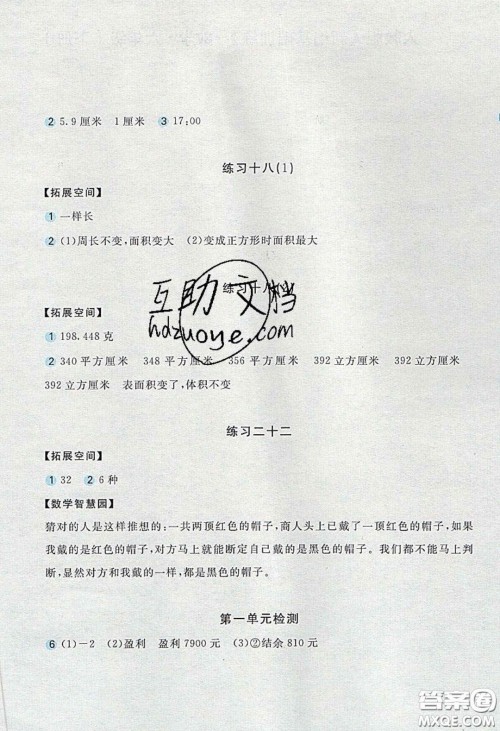 2 5.9厘米 1厘米 3 17:00
练习十八(1)
【拓展空间】
1 一样长
2 (1)周长不变,面积变大 (2)变成正方形时面积最大
练习十八
【拓展空间】
1 198.448克
2 340平方厘米 348平方厘米 356平方厘米 392立方厘米 392立方厘米
392立方厘米 表面积变了,体积不变
练习二十二
【拓展空间】
1 32 2 6种
【数学智慧园】
猜对的人是这样推想的:一共两顶红色的帽子,商人头上已戴了一顶红色的帽子,如果
我戴的是红色的帽子,对方马上就能断定自己戴的是黑色的帽子。我们都不能马上判
断,显然对方和我戴的一样,都是黑色的帽子。
第一单元检测
6 (1)-2 (2)盈利 盈利7900元 (3)②结余810元
互助文档
hdzuoye.com
答案圈
MXQE.COM